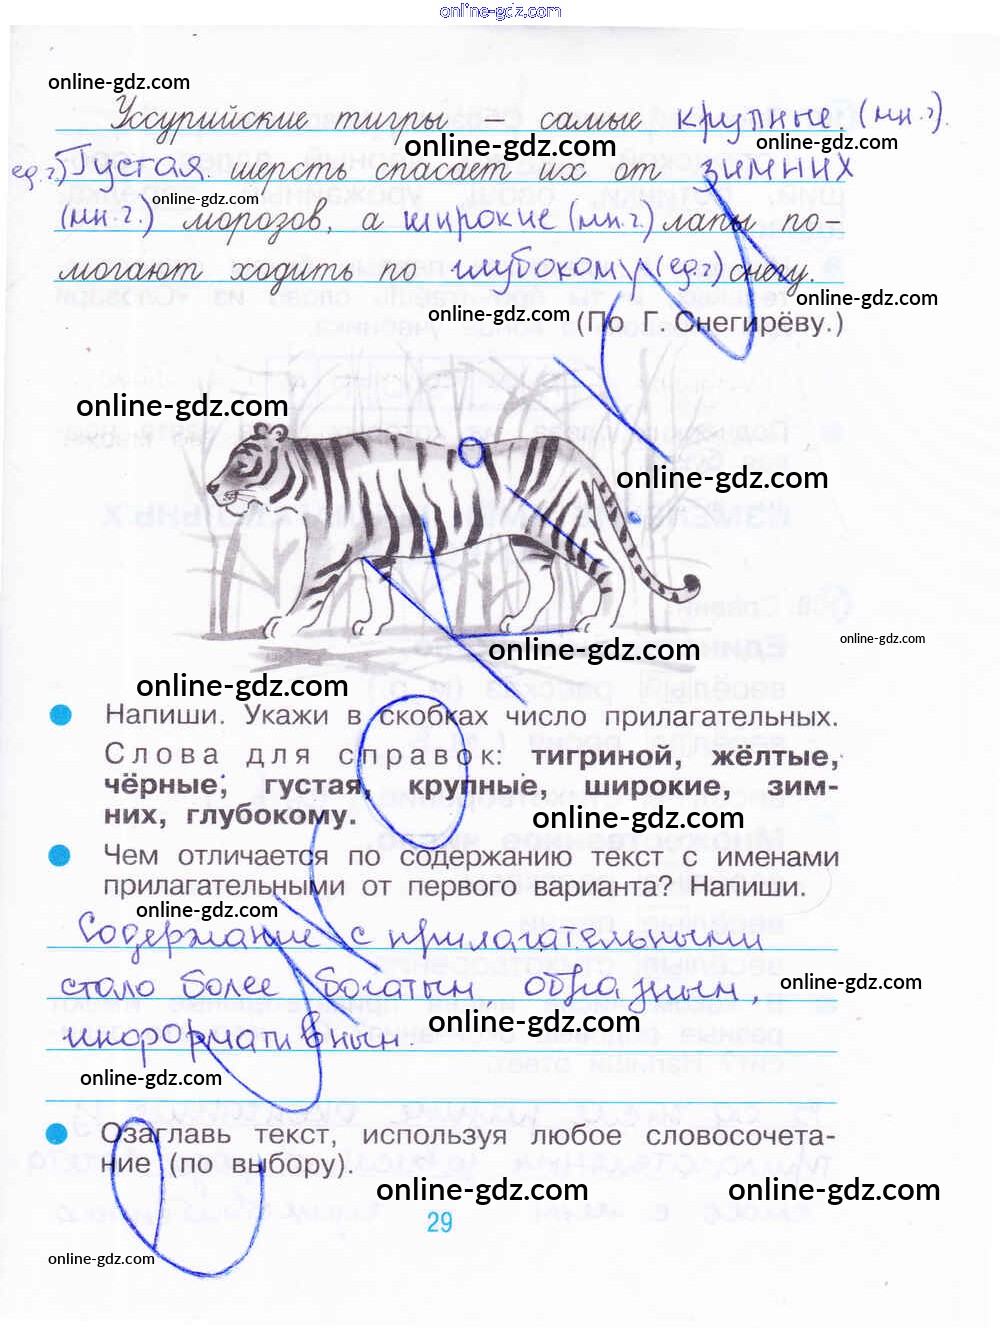 online-gdz.com
online-gdz.com
Уссурийские тигры – самые крупные. (мн.ч).
online-gdz.com
ед.ч.) Густая. шерсть спасает их от зимних
online-gdz.com
(мн.ч.) морозов, а широкие (мн.ч.) лапы по-
могают ходить по глубокому (ед.ч) снегу.
online-gdz.com
online-gdz.com
(По Г. Снегирёву.)
online-gdz.com
online-gdz.com
online-gdz.com
online-gdz.com
online-gdz.com
online-gdz.com
online-gdz.com
Напиши. Укажи в скобках число прилагательных.
Слова для справок: тигриной, жёлтые,
чёрные, густая, крупные, широкие, зим-
них, глубокому.
online-gdz.com
Чем отличается по содержанию текст с именами
прилагательными от первого варианта? Напиши.
online-gdz.com
Содержание с прилагательными
стало более богатым, образным,
online-gdz.com
online-gdz.com
информативным.
online-gdz.com
Озаглавь текст, используя любое словосочета-
ние (по выбору).
online-gdz.com
online-gdz.com
29
online-gdz.com